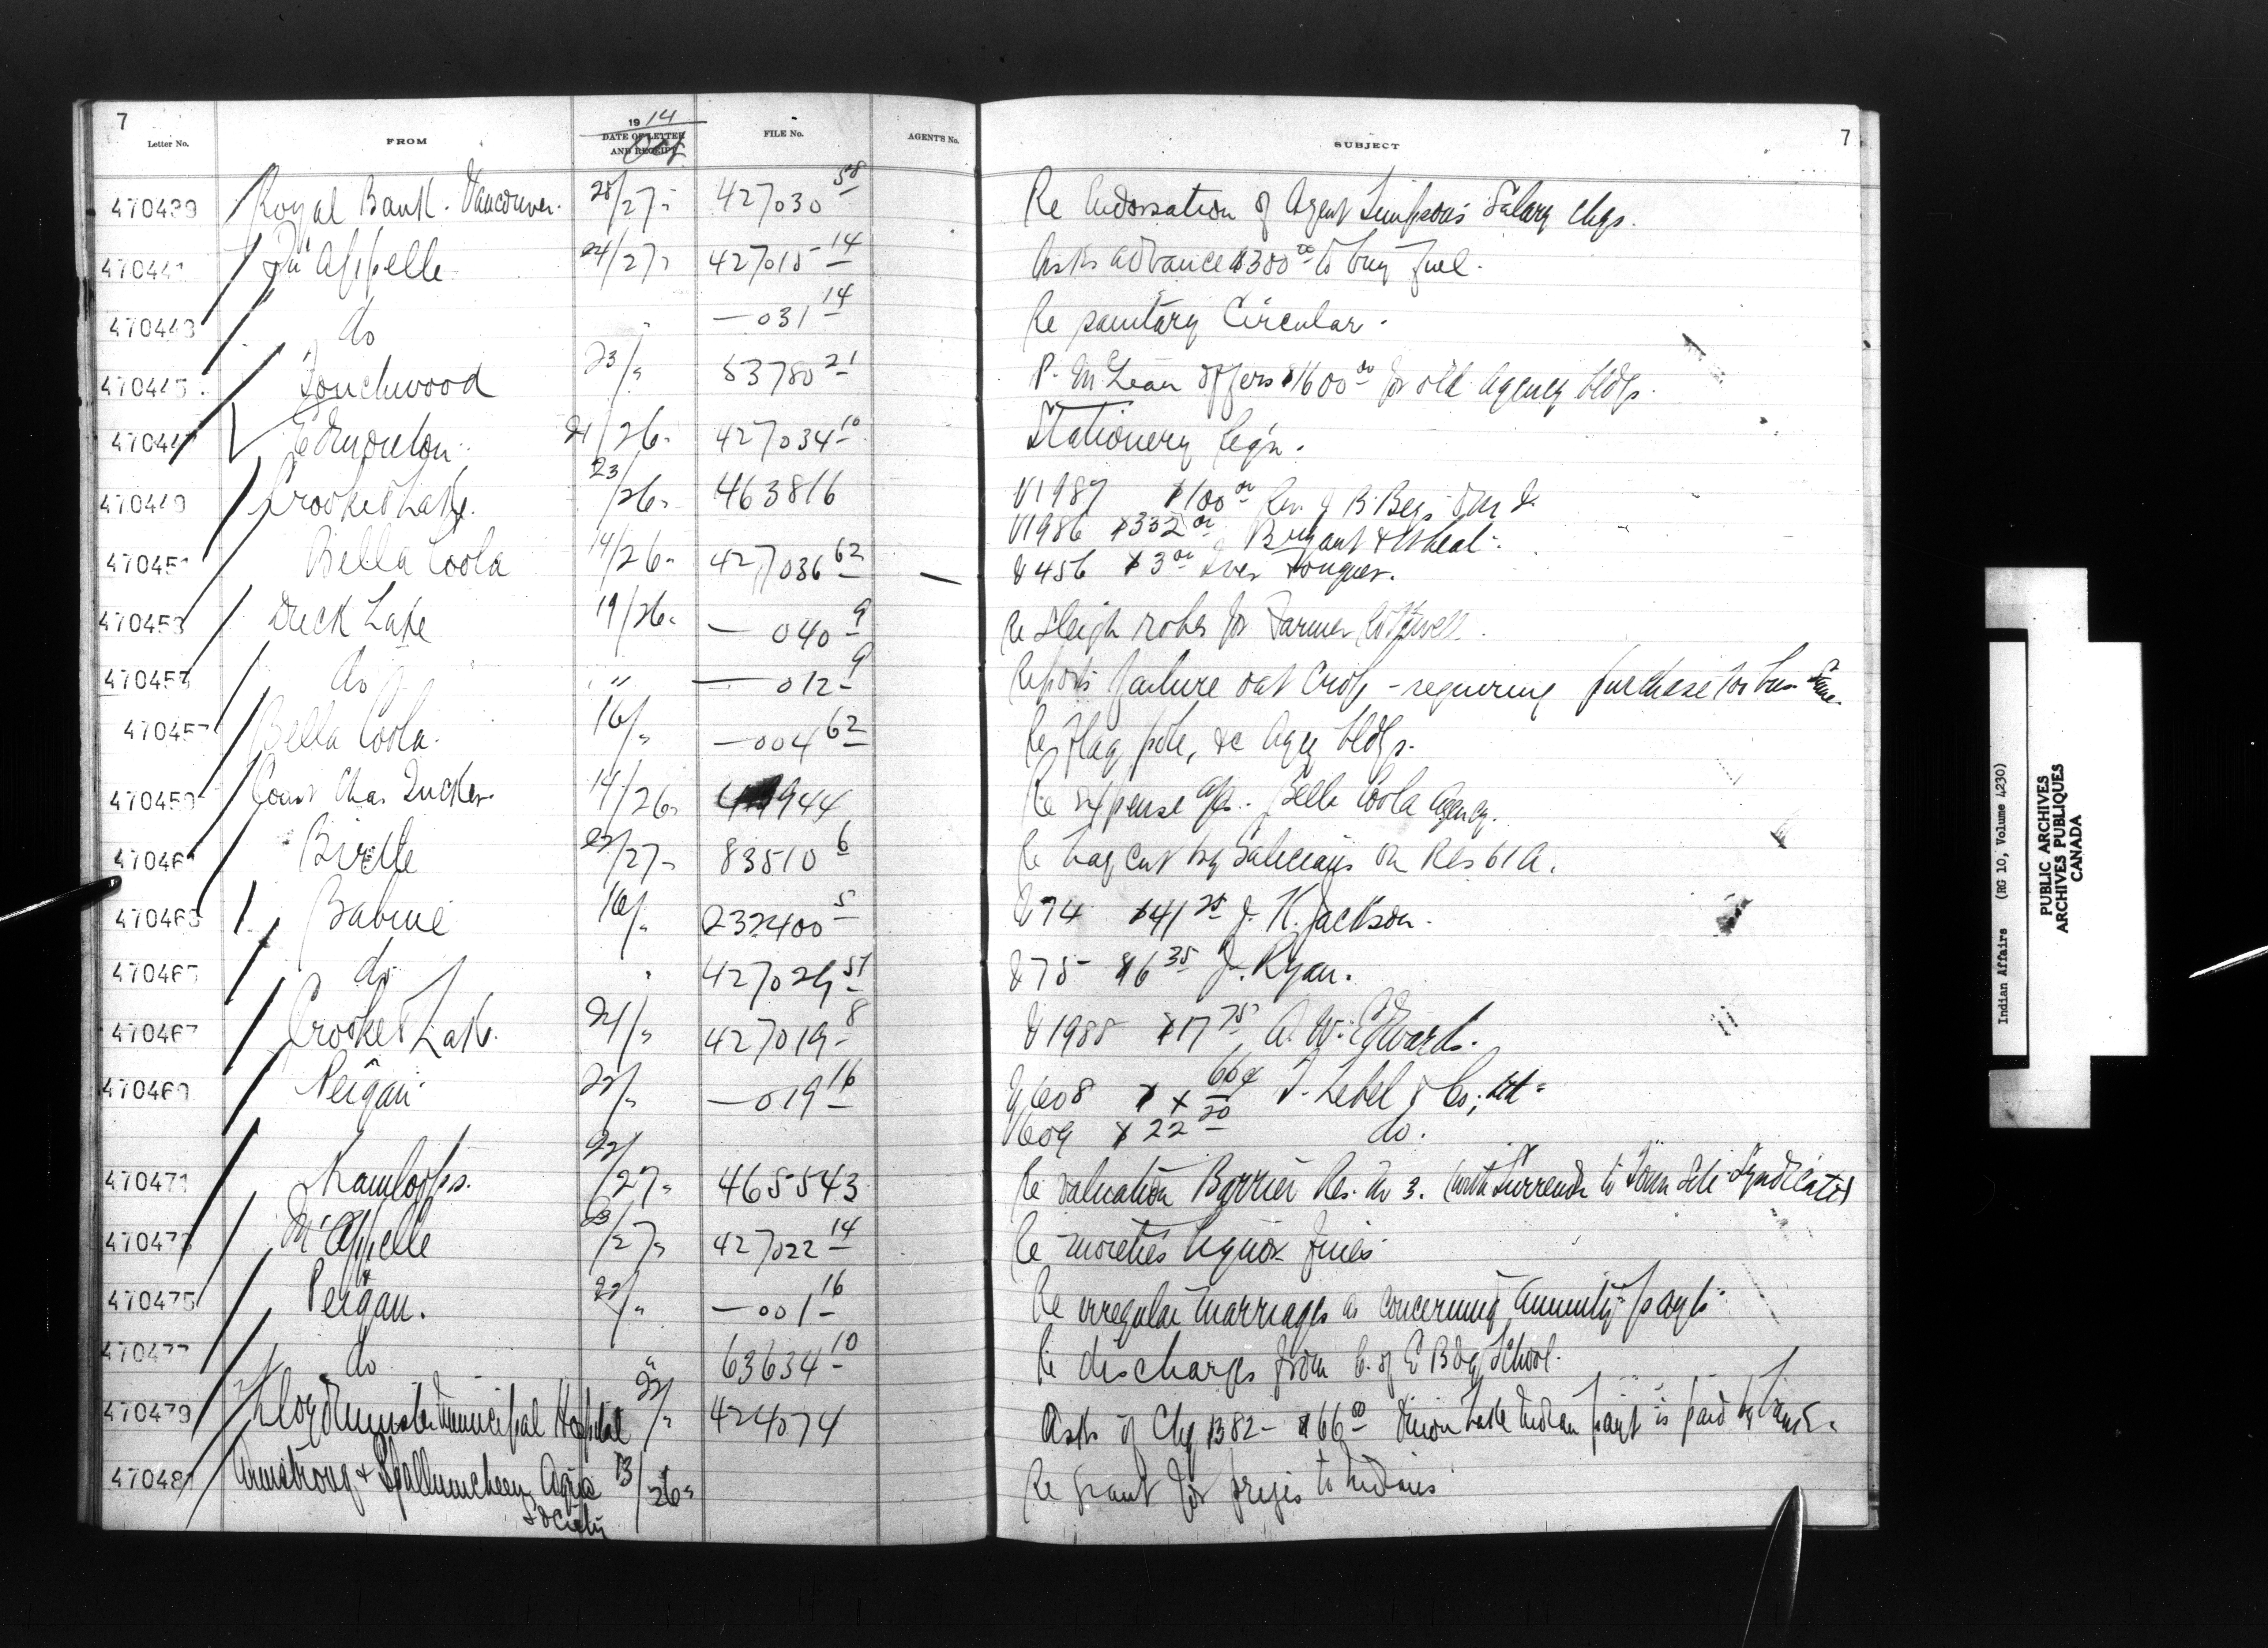 7
Letter No. FROM 1914 DATE OF LETTER AND RECEIPT Oct FILE No. AGENT'S No. SUBJECT 7
470439 Royal Bank. Vancouver. 28/27 " 427030 58 Re Endorsation of Agent Simpson's Salary chqs.
470441 Qu'Appelle 24/27 " 427015 14 Asks advance $300 00 to buy fuel.
470443 do " — 031 14 Re sanitary Circular.
470445 Touchwood 23/ " 53780 21 P. McLean offers $1600 00 for old Agency bldgs.
470447 Edmonton. 21/26 " 427034 10 Stationery Reqn.
470449 Crooked Lake. 23/26 " 463816 V1987 $100 00 Rev. J B. Bey
V1986 $332 00 Bryant &
470451 Bella Coola 14/26 " 427036 62 V456 $3 00 Iver
470453 Duck Lake 19/26 " — 040 9 Re Sleigh robes for Farmer
470455 do " " — 012 9 Reports failure oat crop - requiring purchase for
470457 Bella Coola. 16/ " — 004 62 Re Flag pole, &c Agcy bldgs.
470459 Const Chas Tucker. 14/26 " 944 Re expense a/c. Bella Coola Agency.
470461 Birtle 23/27 " 83510 6 Re hay cut by Galicians on Res 61A.
470463 Babine 16/ " 232400 5 V74 $41 25 J. K. Jackson.
470465 do " 427029 57 V75 $6 35 J. Ryan.
470467 Crooked Lake. 21/ " 427019 8 V1988 $17 75 A. W. Edwards.
470469 Peigan 22/ " — 019 16 V608 T. Lebel & Co; Ltd
V609 $22 20 do.
470471 Kamloops. 22/27 " 465543 Re valuation Barrier Res. No 3. (with Surrender to Town Site Syndicate)
470473 Qu'Appelle 23/27 " 427022 14 Re moieties liquor fines
470475 Peigan. 22/ " — 001 16 Re irregular marriages as concerning annuity payts
470477 do " 63634 10 Re discharges from C. of E Bdg School.
470479 Lloydminster Municipal Hospital 22/ " 424074 Asks if Chq 1382 - $66 00 Onion Lake Indian payt is paid by
470481 Armstrong & Spallumcheen Agric Society 13/26 " Re grant for prizes to Indians
Indian Affairs (RG 10, Volume 4230)
PUBLIC ARCHIVES
ARCHIVES PUBLIQUES
CANADA